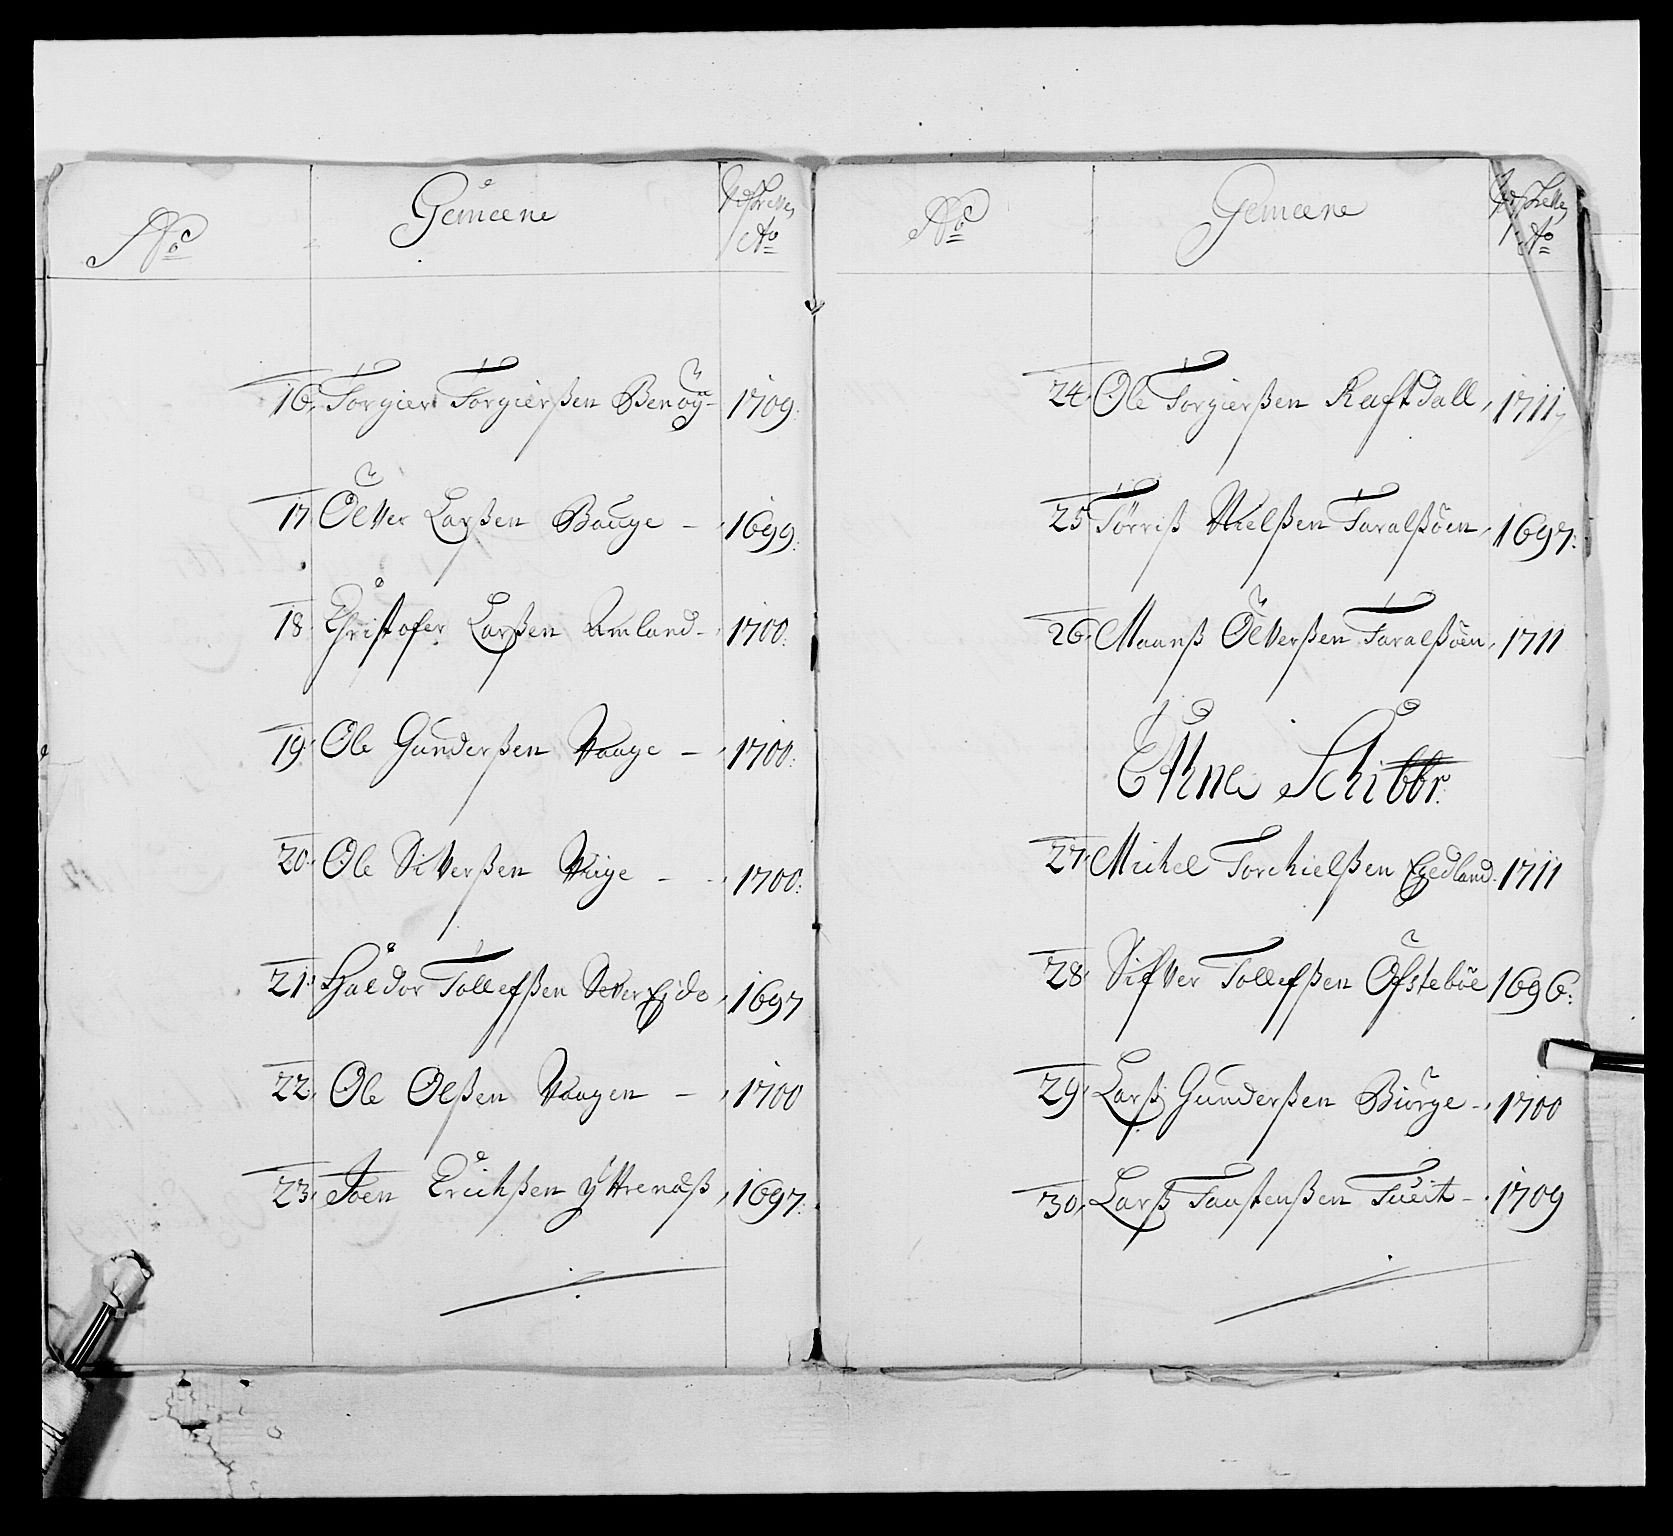 No
Gemeene
Ao
16. Torgier Torgierßen Benöÿ - 1709.
17. Ölver Larßen Bauge - 1699.
18. Christofer Larßen Amland - 1700.
19. Ole Gunderßen Waage - 1700.
20. Ole Siverßen Wiige - 1700.
21. Haldor Tollefßen Sever Eide, 1697
22. Ole Olßen Waagen - 1700
23. Joen Erichßen Yttrenæß, 1697.
No
Gemeene
Ao
24. Ole Torgierßen Raftdall, 1711,
25. Törriß Nielßen Taralßöen, 1697.
26. Maanß Ölverßen Taralßöen, 1711
Ethne Schibbr.
27. Michel Torchielßen Egedland. 1711
28. Sifver Tollefßen Ofsteböe 1696.
29. Larß Gunderßen Biörge - 1700
30. Larß Taastenßen Tueit - 1709